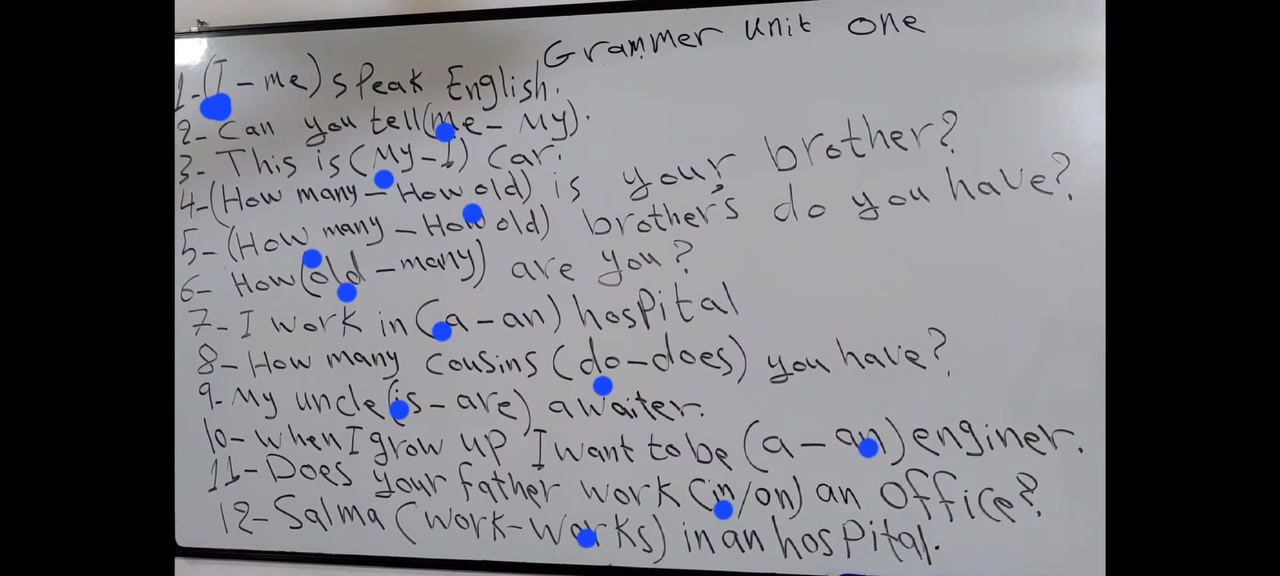 Grammer unit one
1-(I-me) speak English.
2-Can you tell(me-My).
3-This is(My-I) Car.
4-(How many-How old) is your brother?
5-(How many-How old) brother's do you have?
6-How(old-many) are you?
7-I work in(a-an) hospital
8-How many cousins (do-does) you have?
9-My uncle(is-are) a waiter.
10-when I grow up I want to be (a-an) enginer.
11-Does your father work (in/on) an office?
12-Salma (work-works) in an hospital.